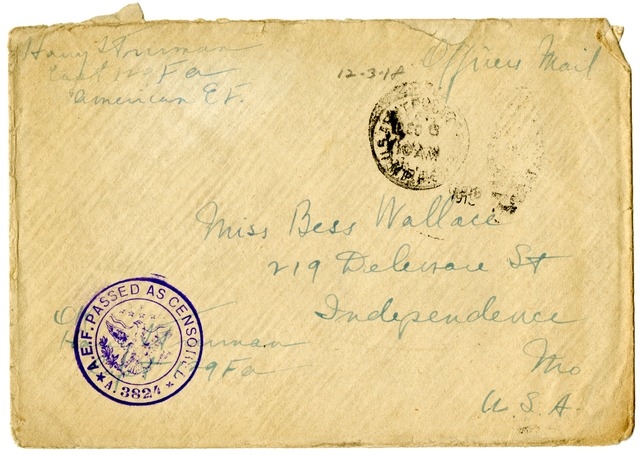 Harry S Truman
Capt 129 Fa
American E F.
Officers Mail
12-3-18
DEC
Miss Bess Wallace
219 Delaware St
Independence
Mo
U.S.A.
A.E.F. PASSED AS CENSORED
A. 3824
Truman
129 Fa